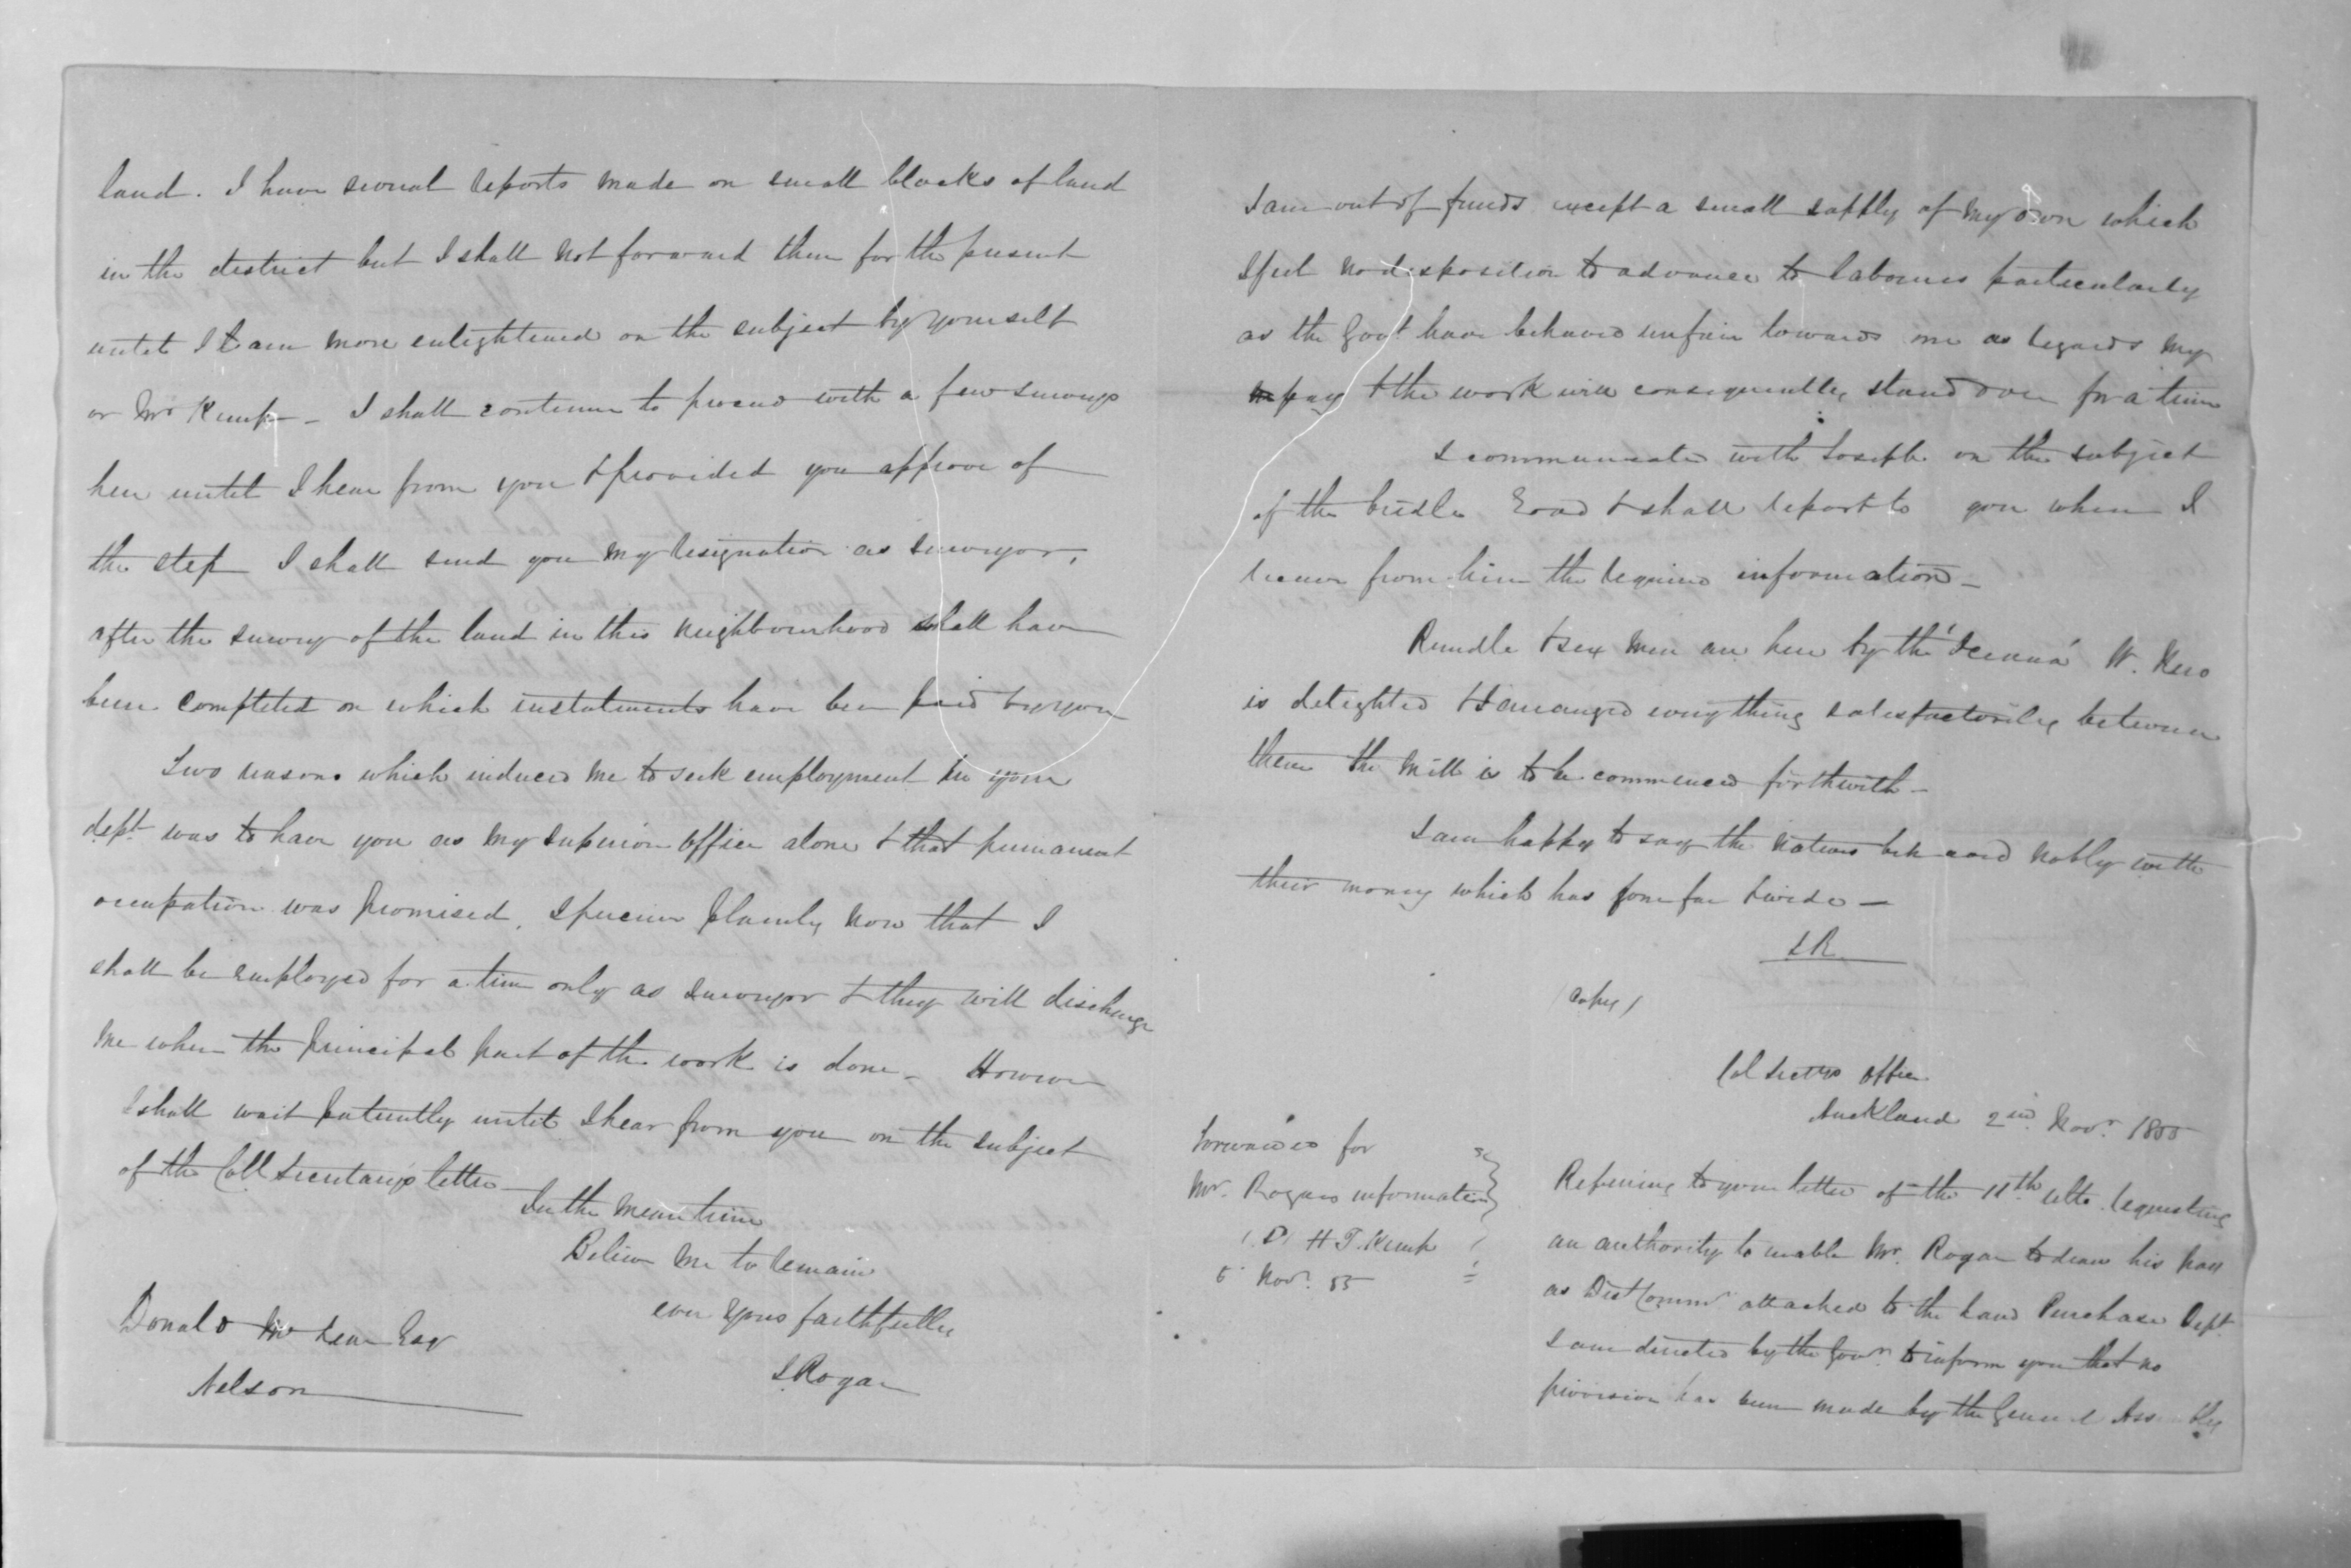 land. I have several reports made on small blocks of land
in the district but I shall not forward them for the present
until I am more enlightened on the subject by yourself
or Mr Kemp - I shall continue to proceed with a few surveys
here until I hear from you & provided you approve of
the step I shall send you my resignation as surveyor,
after the survey of the land in this neighbourhood shall have
been completed on which instalments have been paid by you
Two reasons which induced me to seek employment in your
dept was to have you as my superior officer alone & that permanent
occupation was promised. I perceive plainly now that I
shall be employed for a time only as surveyor & they will discharge
me when the principal part of the work is done - However
I shall wait patiently until I hear from you on the subject
of the Coll Secretary's letter
In the meantime
Believe me to remain
ever yours faithfully
J. Rogan
Donald McLean Esqr
Nelson
I am out of funds except a small supply of my own which
I feel no disposition to advance to labourers particularly
as the Govt have behaved unfair towards me as regards my
pay & the work will consequently stand over for a time
I communicate with Joseph on the subject
of the bridle road & shall report to you when I
receive from him the required information -
Rundle & six men are here by the W.
is delighted & I arranged everything satisfactorily between
them the mill is to be commenced forthwith -
I am happy to say the natives behaved nobly with
their money which has gone far & wide -
J R
(Copy)
Col Sectys Office
Auckland 2nd Novr. 1855
Forwarded for
Mr. Rogans information
H. T. Kemp
Novr. 55
Referring to your letter of the 11th ulto. requesting
an authority to enable Mr. Rogan to draw his pay
as Dist Commr attached to the Land Purchase Dept
I am directed by the Govr. to inform you that no
provision has been made by the General Assembly